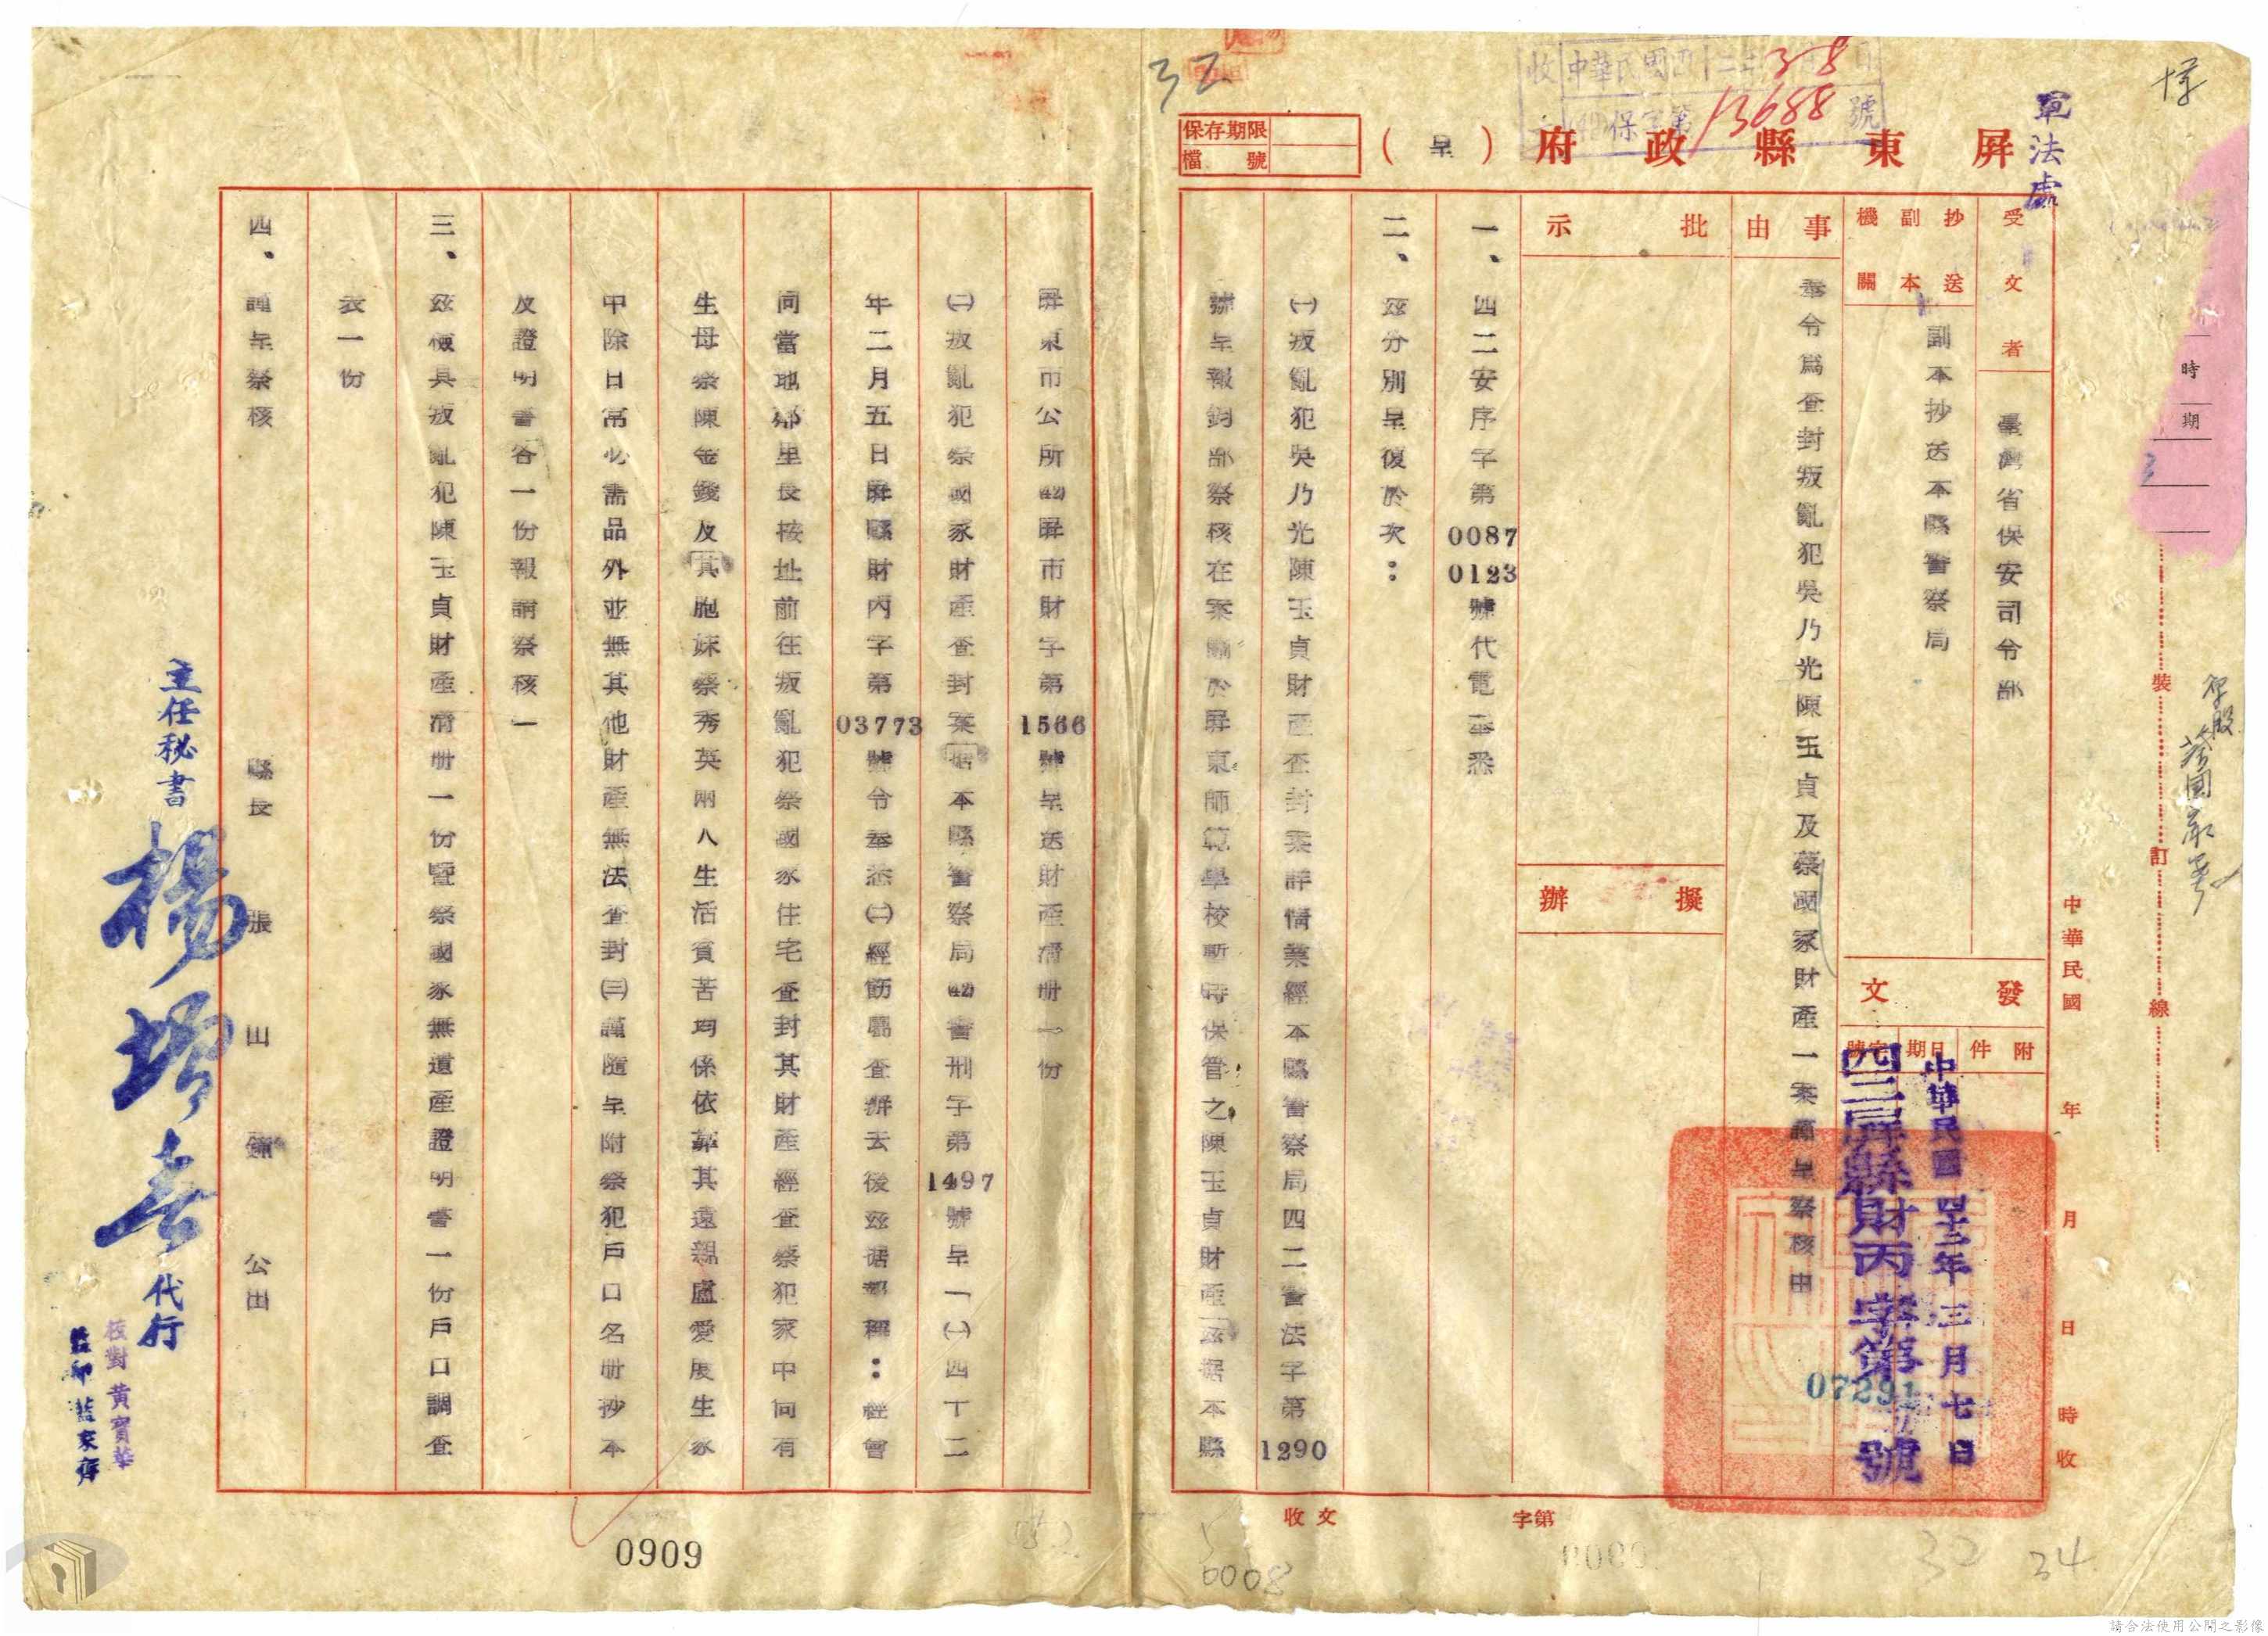 屏東縣政府（呈）
保存期限
檔號
收 中華民國四十二年 3 8 日
保字第 13688 號
軍法處
32
受文者 臺灣省保安司令部
抄送副本機關 副本抄送本縣警察局
事由 奉令為查封叛亂犯吳乃光陳玉貞及蔡國家財產一案謹呈察核由
批示
擬辦
發文
附件
日期 中華民國四十二年三月七日
字號 四二屏縣財丙字第07291號
中華民國 年 月 日 時收
裝 訂 線
時
期
一、四二安序字第0087 0123號代電奉悉
二、茲分別呈復於次：
㈠叛亂犯吳乃光陳玉貞財產查封案詳情業經本縣警察局四二警法字第1290
號呈報鈞部察核在案關於屏東師範學校暫時保管之陳玉貞財產茲据本縣
屏東市公所㊷屏市財字第1566號呈送財產清册一份
㈡叛亂犯蔡國家財產查封案据本縣警察局㊷警刑字第1497號呈一㈠四十二
年二月五日屏縣財丙字第03773號令奉悉㈡經飭屬查辦去後茲据報稱：經會
同當地鄰里長按址前往叛亂犯蔡國家住宅查封其財產經查蔡犯家中尚有
生母蔡陳金錢及其胞妹蔡秀英兩人生活貧苦均係依靠其遠親盧愛展生家
中除日常必需品外並無其他財產無法查封㈢謹隨呈附蔡犯戶口名册抄本
及證明書各一份報請察核一
三、茲檢具叛亂犯陳玉貞財產清册一份暨蔡國家無遺產證明書一份戶口調查
表一份
四、謹呈察核
縣長 張山鐘 公出
主任秘書 楊增喜 代行
校對 黃寶華
監印 藍家齊
收文 字第
0909
0008
32
34
請合法使用公開之影像